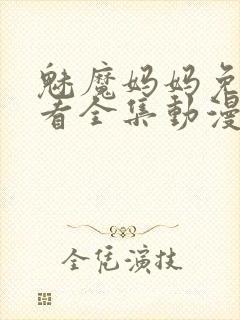 魅魔妈妈免
看全集動漫
全凭演技